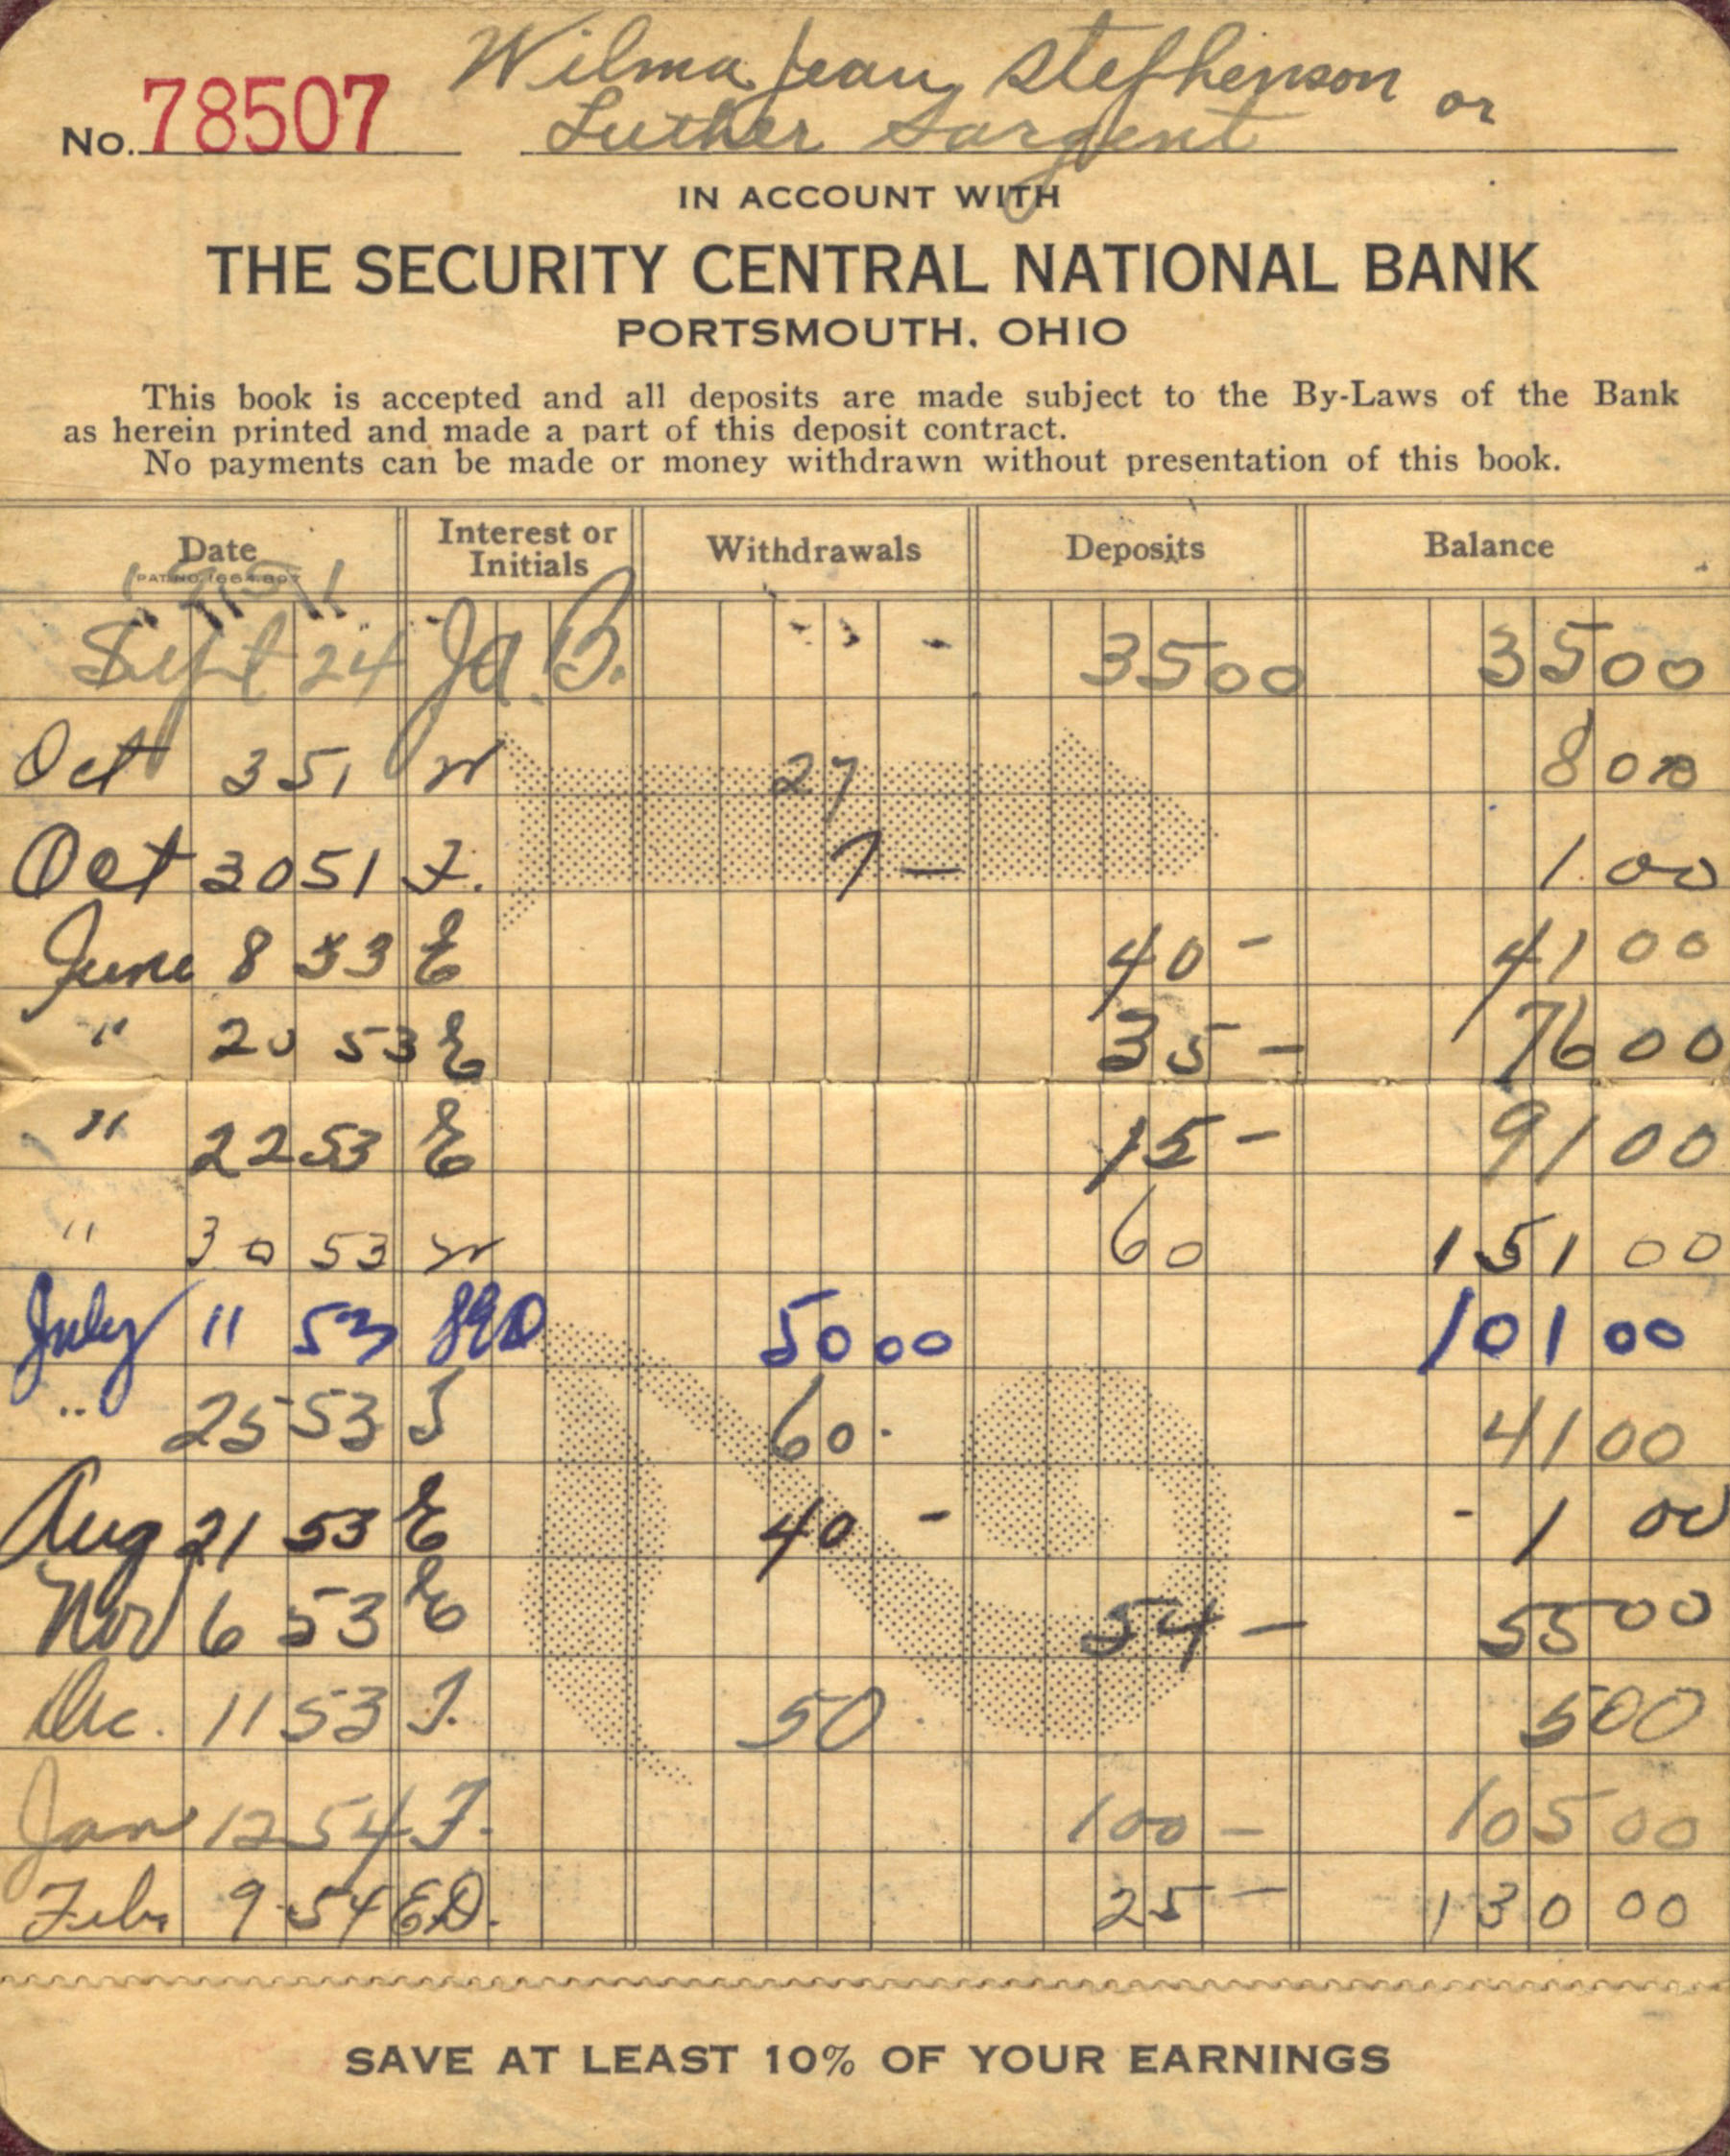 Wilma Jean Stephenson or
No. 78507 Luther Sargent
IN ACCOUNT WITH
THE SECURITY CENTRAL NATIONAL BANK
PORTSMOUTH, OHIO
This book is accepted and all deposits are made subject to the By-Laws of the Bank
as herein printed and made a part of this deposit contract.
No payments can be made or money withdrawn without presentation of this book.
Date Interest or Initials Withdrawals Deposits Balance
PAT. NO. 1664807
1951
Sept 24 Ja. B. 3500 3500
Oct 3 51 W 27 800
Oct 30 51 F. 7 — 1 00
June 8 53 E 40 - 41 00
" 20 53 E 35 - 76 00
" 22 53 E 15 - 91 00
" 30 53 W 60 151 00
July 11 53 50 00 101 00
" 25 53 J 60. 41 00
Aug 21 53 E 40 - - 1 00
Nov 6 53 E 54 - 55 00
Dec. 11 53 J. 50. 5 00
Jan 12 54 F. 100 - 105 00
Feb. 9 54 ED. 25 - 130 00
SAVE AT LEAST 10% OF YOUR EARNINGS